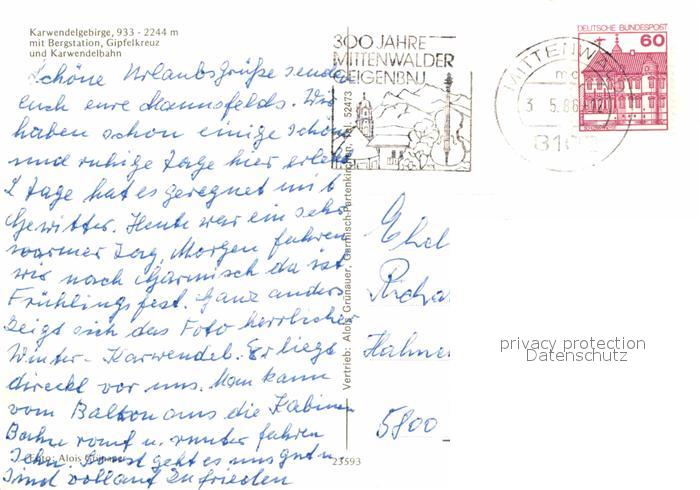 Karwendelgebirge, 933 - 2244 m
mit Bergstation, Gipfelkreuz
und Karwendelbahn
Schöne Urlaubsgrüße senden
euch eure Mannsfelds. Wir
haben schon einige schöne
und ruhige Tage hier erlebt
2 Tage hat es geregnet mit
Gewitter. Heute war ein sehr
warmer Tag, Morgen fahren
wir nach Garmisch da ist
Frühlingsfest. Ganz anders
zeigt sich das Foto herrlicher
Winter-Karwendel. Er liegt
direckt vor uns. Man kann
vom Balkon aus die Kabinen
Bahn rauf u. runter fahren
sehn. Sonst geht es uns gut u.
sind vollauf zufrieden
Foto: Alois Grünauer
23593
Vertrieb: Alois Grünauer, Garmisch-Partenkirchen, Tel. 52473
300 JAHRE
MITTENWALDER
GEIGENBAU
MITTENWALD
3.5.86-12
810
DEUTSCHE BUNDESPOST
60
Ehel
Richa
Hahne
5800
privacy protection
Datenschutz